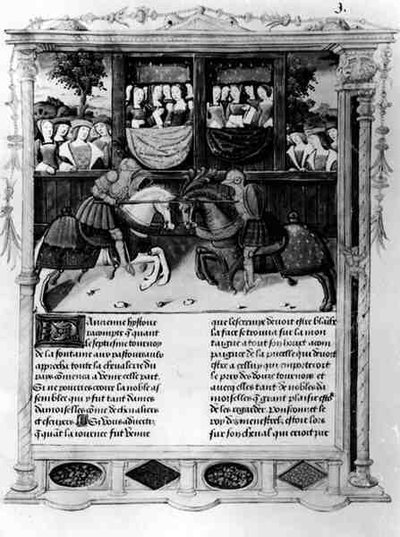 3.
Ancienne hystoire
racompte q̃ quant
le septisme tournoy
de la fontaine aux pastoureaulx
approcha toute la chevalerie du
pays comença a venir celle part
Si ne pourries croire la noble as
semblee qui y fut tant dames
damoiselles cõme de chevaliers
et escuiers Si vous advertis
q̃ quãt la iournee fut venue
que lescreue devoit estre
la face se trouva sur la mon
taigne a tout son acom
paignie de la pucelle qui devoit
estre a celluy qui emporteroit
le pris des douze tournois et
avecq elles tant de nobles da
moiselles q̃ grant plaisir est
de les regarder Ponsonnet le
roy des menestrez estoit lors
sur son cheval qui crioit sur